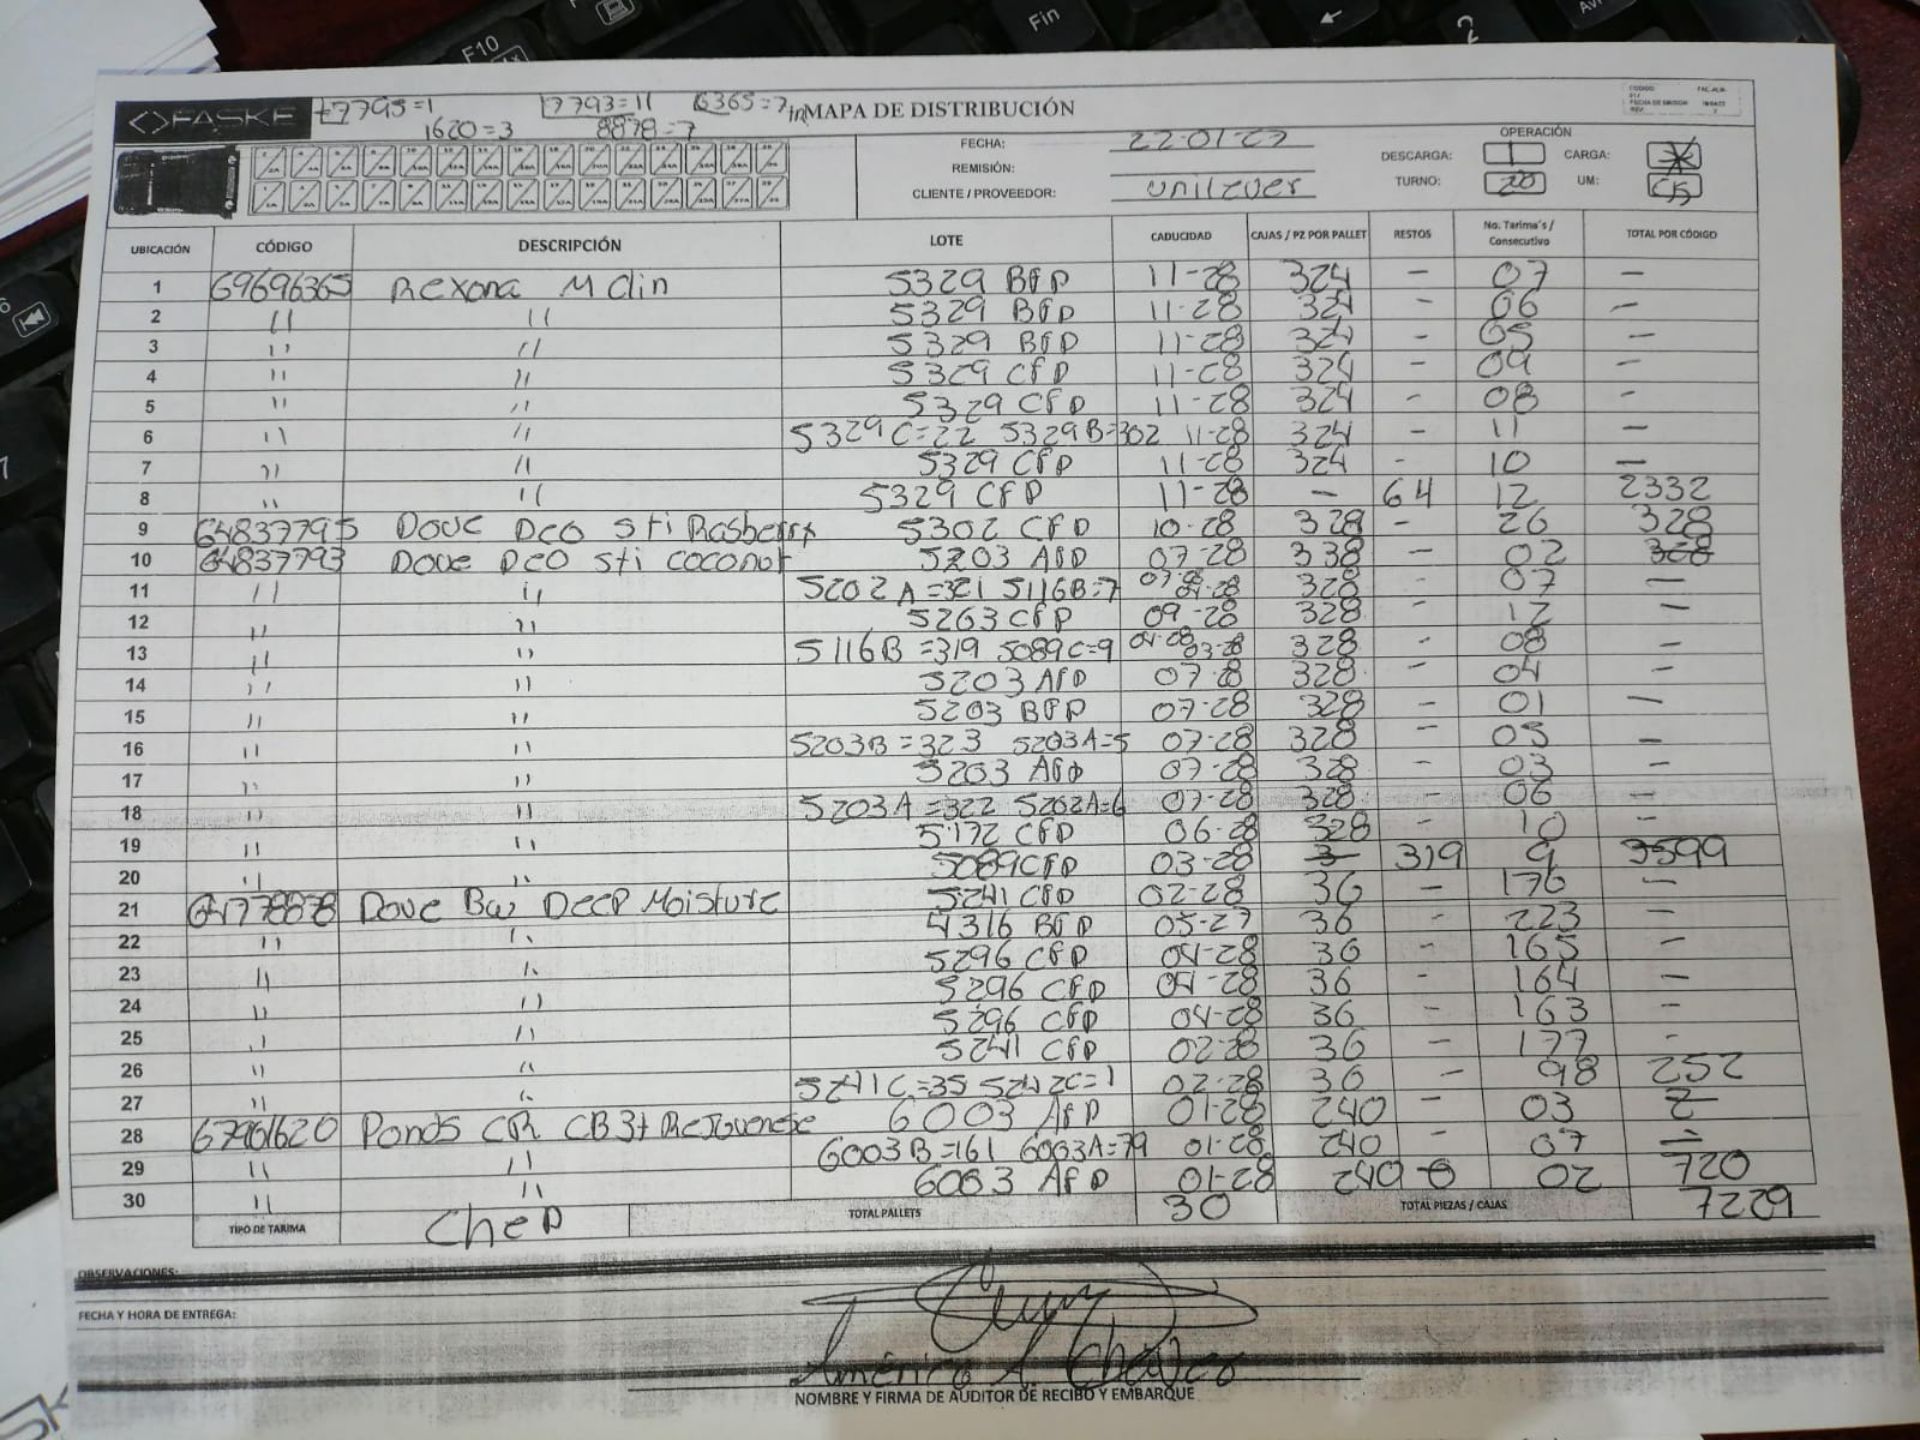 FASKE 7795=1 7793=11 6365=7 MAPA DE DISTRIBUCIÓN
1620=3 8878=7
FECHA: 22-01-27 OPERACIÓN
REMISIÓN: DESCARGA: 1 CARGA:
CLIENTE / PROVEEDOR: Unilever TURNO: UM: CB
UBICACIÓN CÓDIGO DESCRIPCIÓN LOTE CADUCIDAD CAJAS / PZ POR PALLET RESTOS No. Tarima's / Consecutivo TOTAL POR CÓDIGO
1 69696365 Rexona M Clin 5329 BFD 11-28 324 - 07 -
2 11 11 5329 BFD 11-28 324 - 06 -
3 11 11 5329 BFD 11-28 324 - 05 -
4 11 11 5329 CFD 11-28 324 - 09 -
5 11 11 5329 CFD 11-28 324 - 08 -
6 11 11 5329C=22 5329B=302 11-28 324 - 11 -
7 11 11 5329 CFD 11-28 324 - 10 -
8 11 11 5329 CFD 11-28 - 64 12 2332
9 64837795 Dove Deo Sti Rasberry 5302 CFD 10-28 328 - 26 328
10 64837793 Dove Deo Sti Coconut 5203 AFD 07-28 338 - 02 328
11 11 11 5202A=321 5116B=7 07-28 04-28 328 - 07 -
12 11 11 5263 CFD 09-28 328 - 12 -
13 11 11 5116B=319 5089C=9 04-28 03-28 328 - 08 -
14 11 11 5203 AFD 07-28 328 - 04 -
15 11 11 5203 BFD 07-28 328 - 01 -
16 11 11 5203B=323 5203A=5 07-28 328 - 05 -
17 11 11 5203 AFD 07-28 328 - 03 -
18 11 11 5203A=322 5202A=6 07-28 328 - 06 -
19 11 11 5172 CFD 06-28 328 - 10 -
20 11 11 5089 CFD 03-28 3 319 9 3599
21 64778878 Dove Bar Deep Moisture 5241 CFD 02-28 36 - 176 -
22 11 11 4316 BFD 05-27 36 - 223 -
23 11 11 5296 CFD 04-28 36 - 165 -
24 11 11 5296 CFD 04-28 36 - 164 -
25 11 11 5296 CFD 04-28 36 - 163 -
26 11 11 5241 CFD 02-28 36 - 177 -
27 11 11 5241C=35 5242C=1 02-28 36 - 98 252
28 67961620 Ponds CR CB3+ Rejuvenese 6003 AFD 01-28 240 - 03 -
29 11 11 6003B=161 6003A=79 01-28 240 - 07 -
30 11 11 6003 AFD 01-28 240 02 720
TIPO DE TARIMA Chep TOTAL PALLETS 30 TOTAL PIEZAS / CAJAS 7229
OBSERVACIONES:
FECHA Y HORA DE ENTREGA:
Américo A. Chávez
NOMBRE Y FIRMA DE AUDITOR DE RECIBO Y EMBARQUE